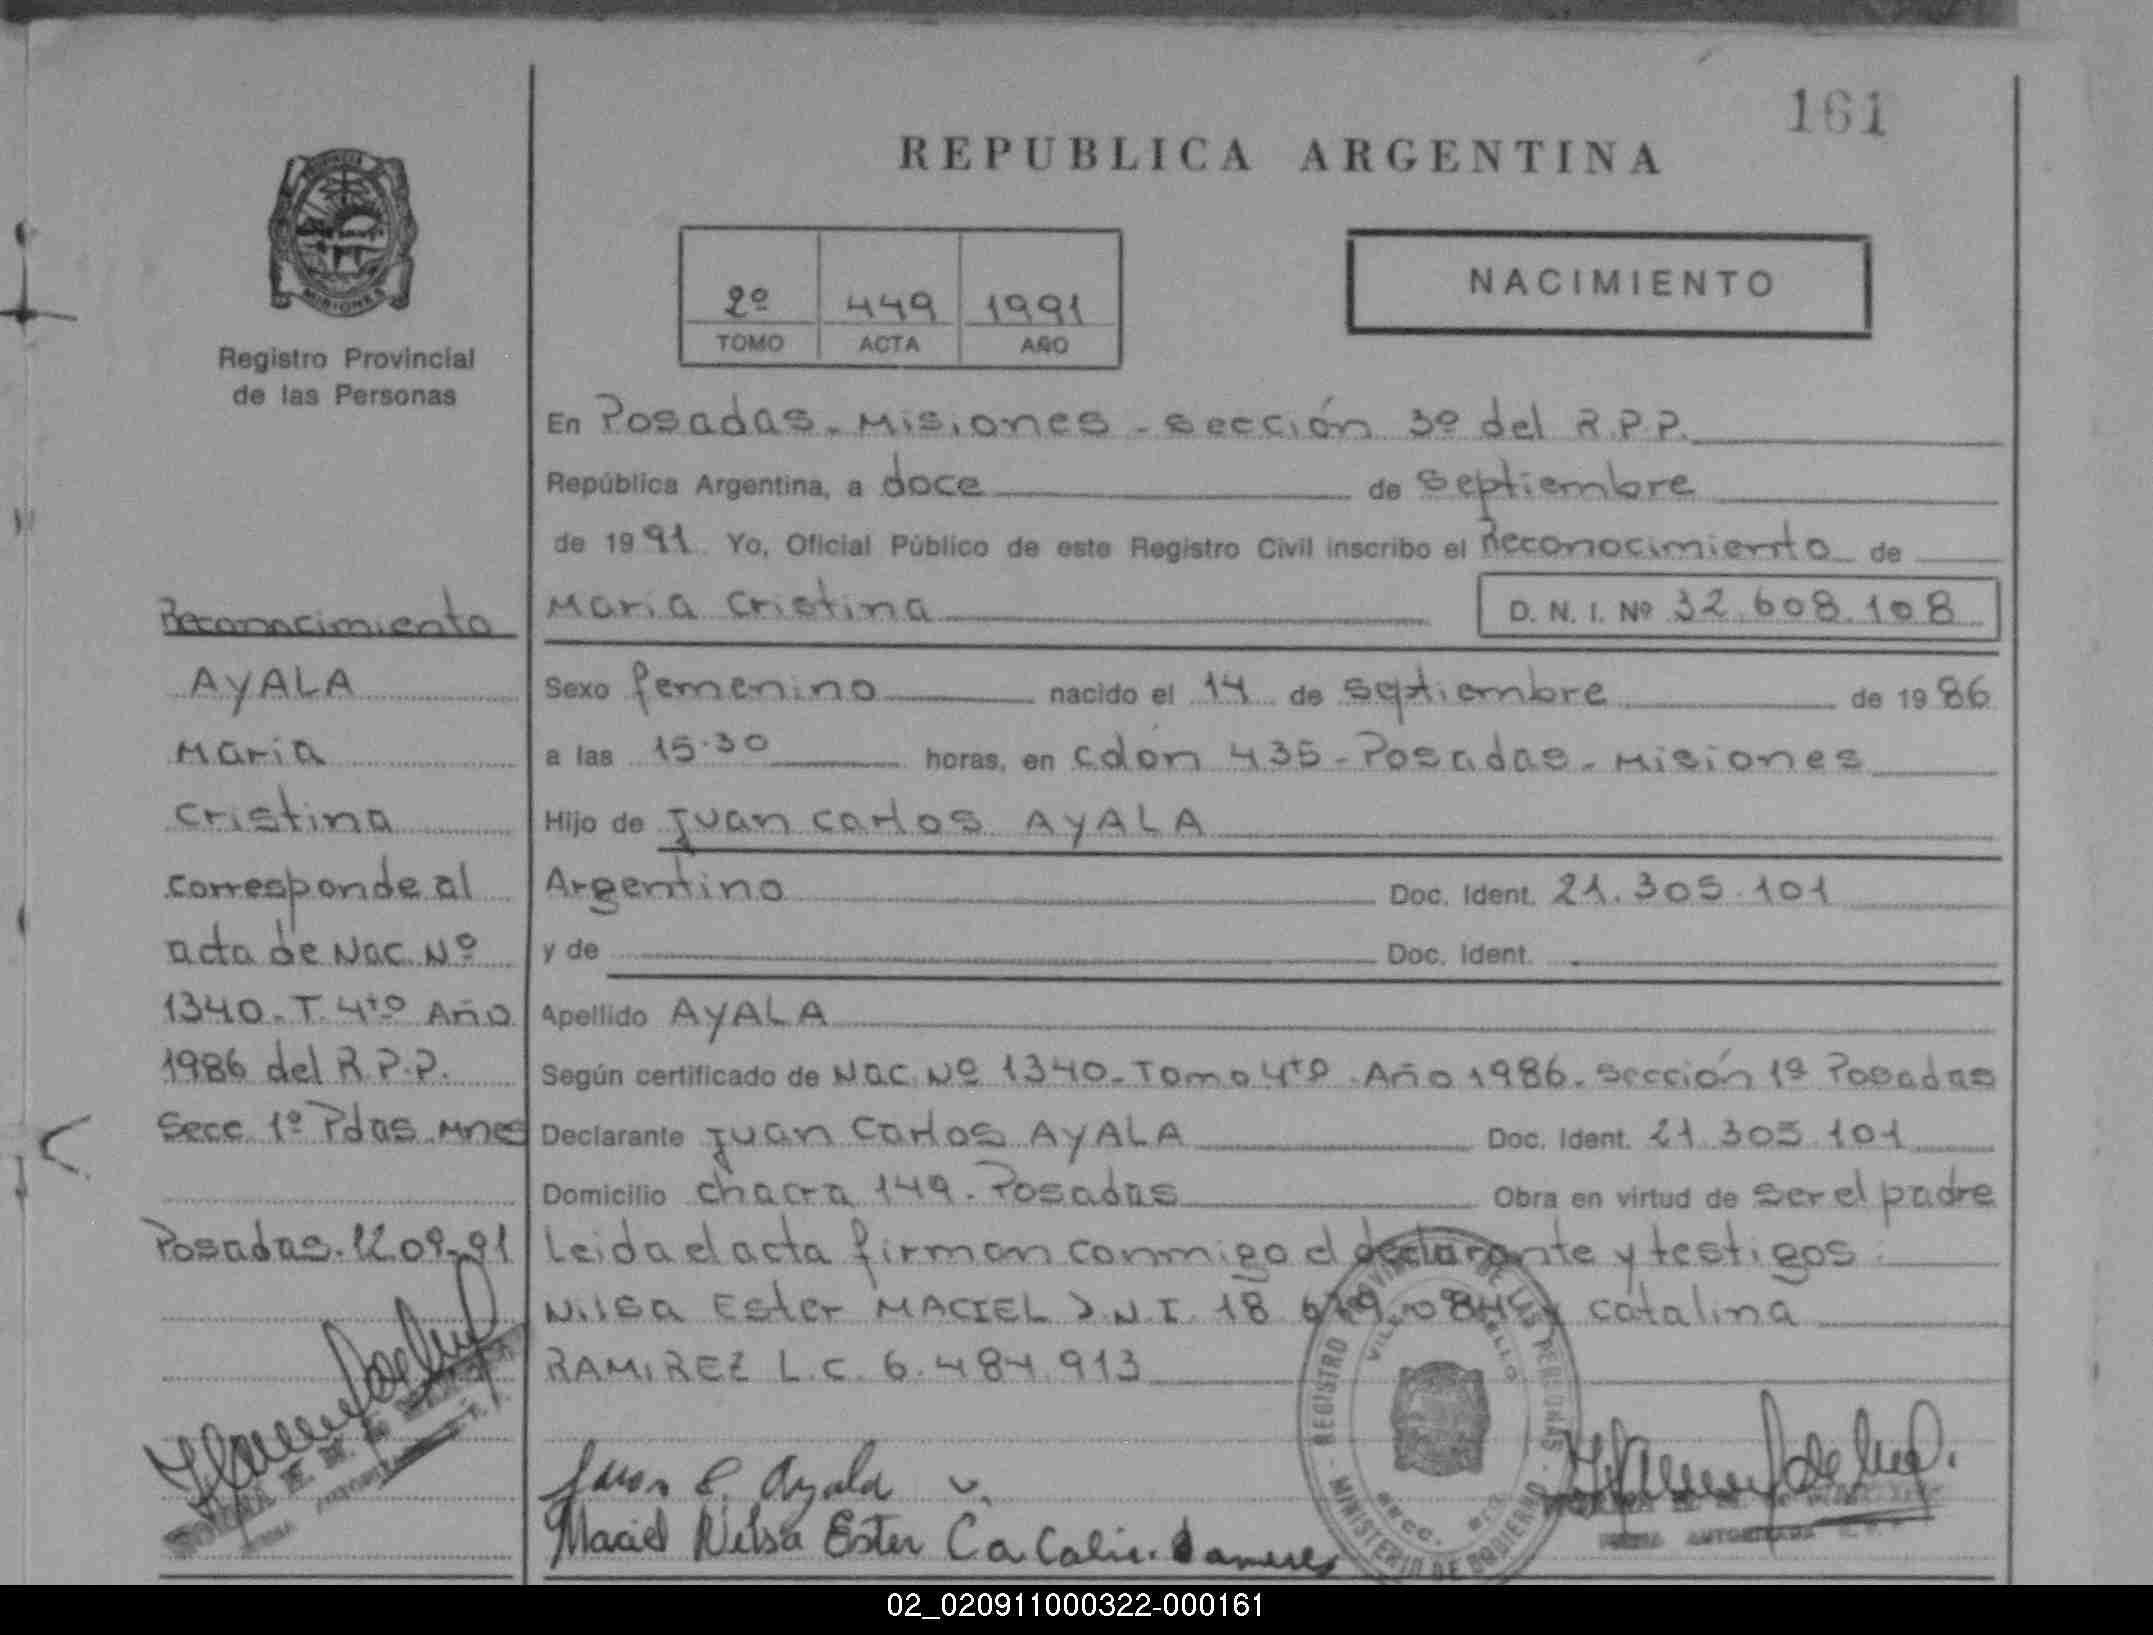 161
REPUBLICA ARGENTINA
MISIONES
2º 449 1991
TOMO ACTA AÑO
NACIMIENTO
Registro Provincial
de las Personas
En Posadas - Misiones - sección 3º del R.P.P.
República Argentina, a doce de septiembre
de 1991 Yo, Oficial Público de este Registro Civil inscribo el Reconocimiento de
Maria Cristina D. N. I. Nº 32.608.108
Sexo femenino nacido el 14 de septiembre de 1986
a las 15.30 horas, en Colón 435 - Posadas - Misiones
Hijo de Juan Carlos AYALA
Argentino Doc. Ident. 21.305.101
y de Doc. Ident.
Apellido AYALA
Según certificado de Nac. Nº 1340 - Tomo 4to Año 1986 - sección 1º Posadas
Declarante Juan Carlos AYALA Doc. Ident. 21.305.101
Domicilio chacra 149 - Posadas Obra en virtud de ser el padre
Leida el acta firman conmigo el declarante y testigos
Nilsa Ester MACIEL D.N.I. 18 y Catalina
RAMIREZ L.C. 6.484.913
Reconocimiento
AYALA
Maria
Cristina
corresponde al
acta de Nac. Nº
1340 - T. 4to Año
1986 del R.P.P.
Secc. 1º Pdas. Mnes
Posadas, 12.09.91
Juan C. Ayala
Maciel Nilsa Ester
REGISTRO DE LAS PERSONAS
MINISTERIO DE GOBIERNO
FIRMA AUTORIZADA
02_020911000322-000161